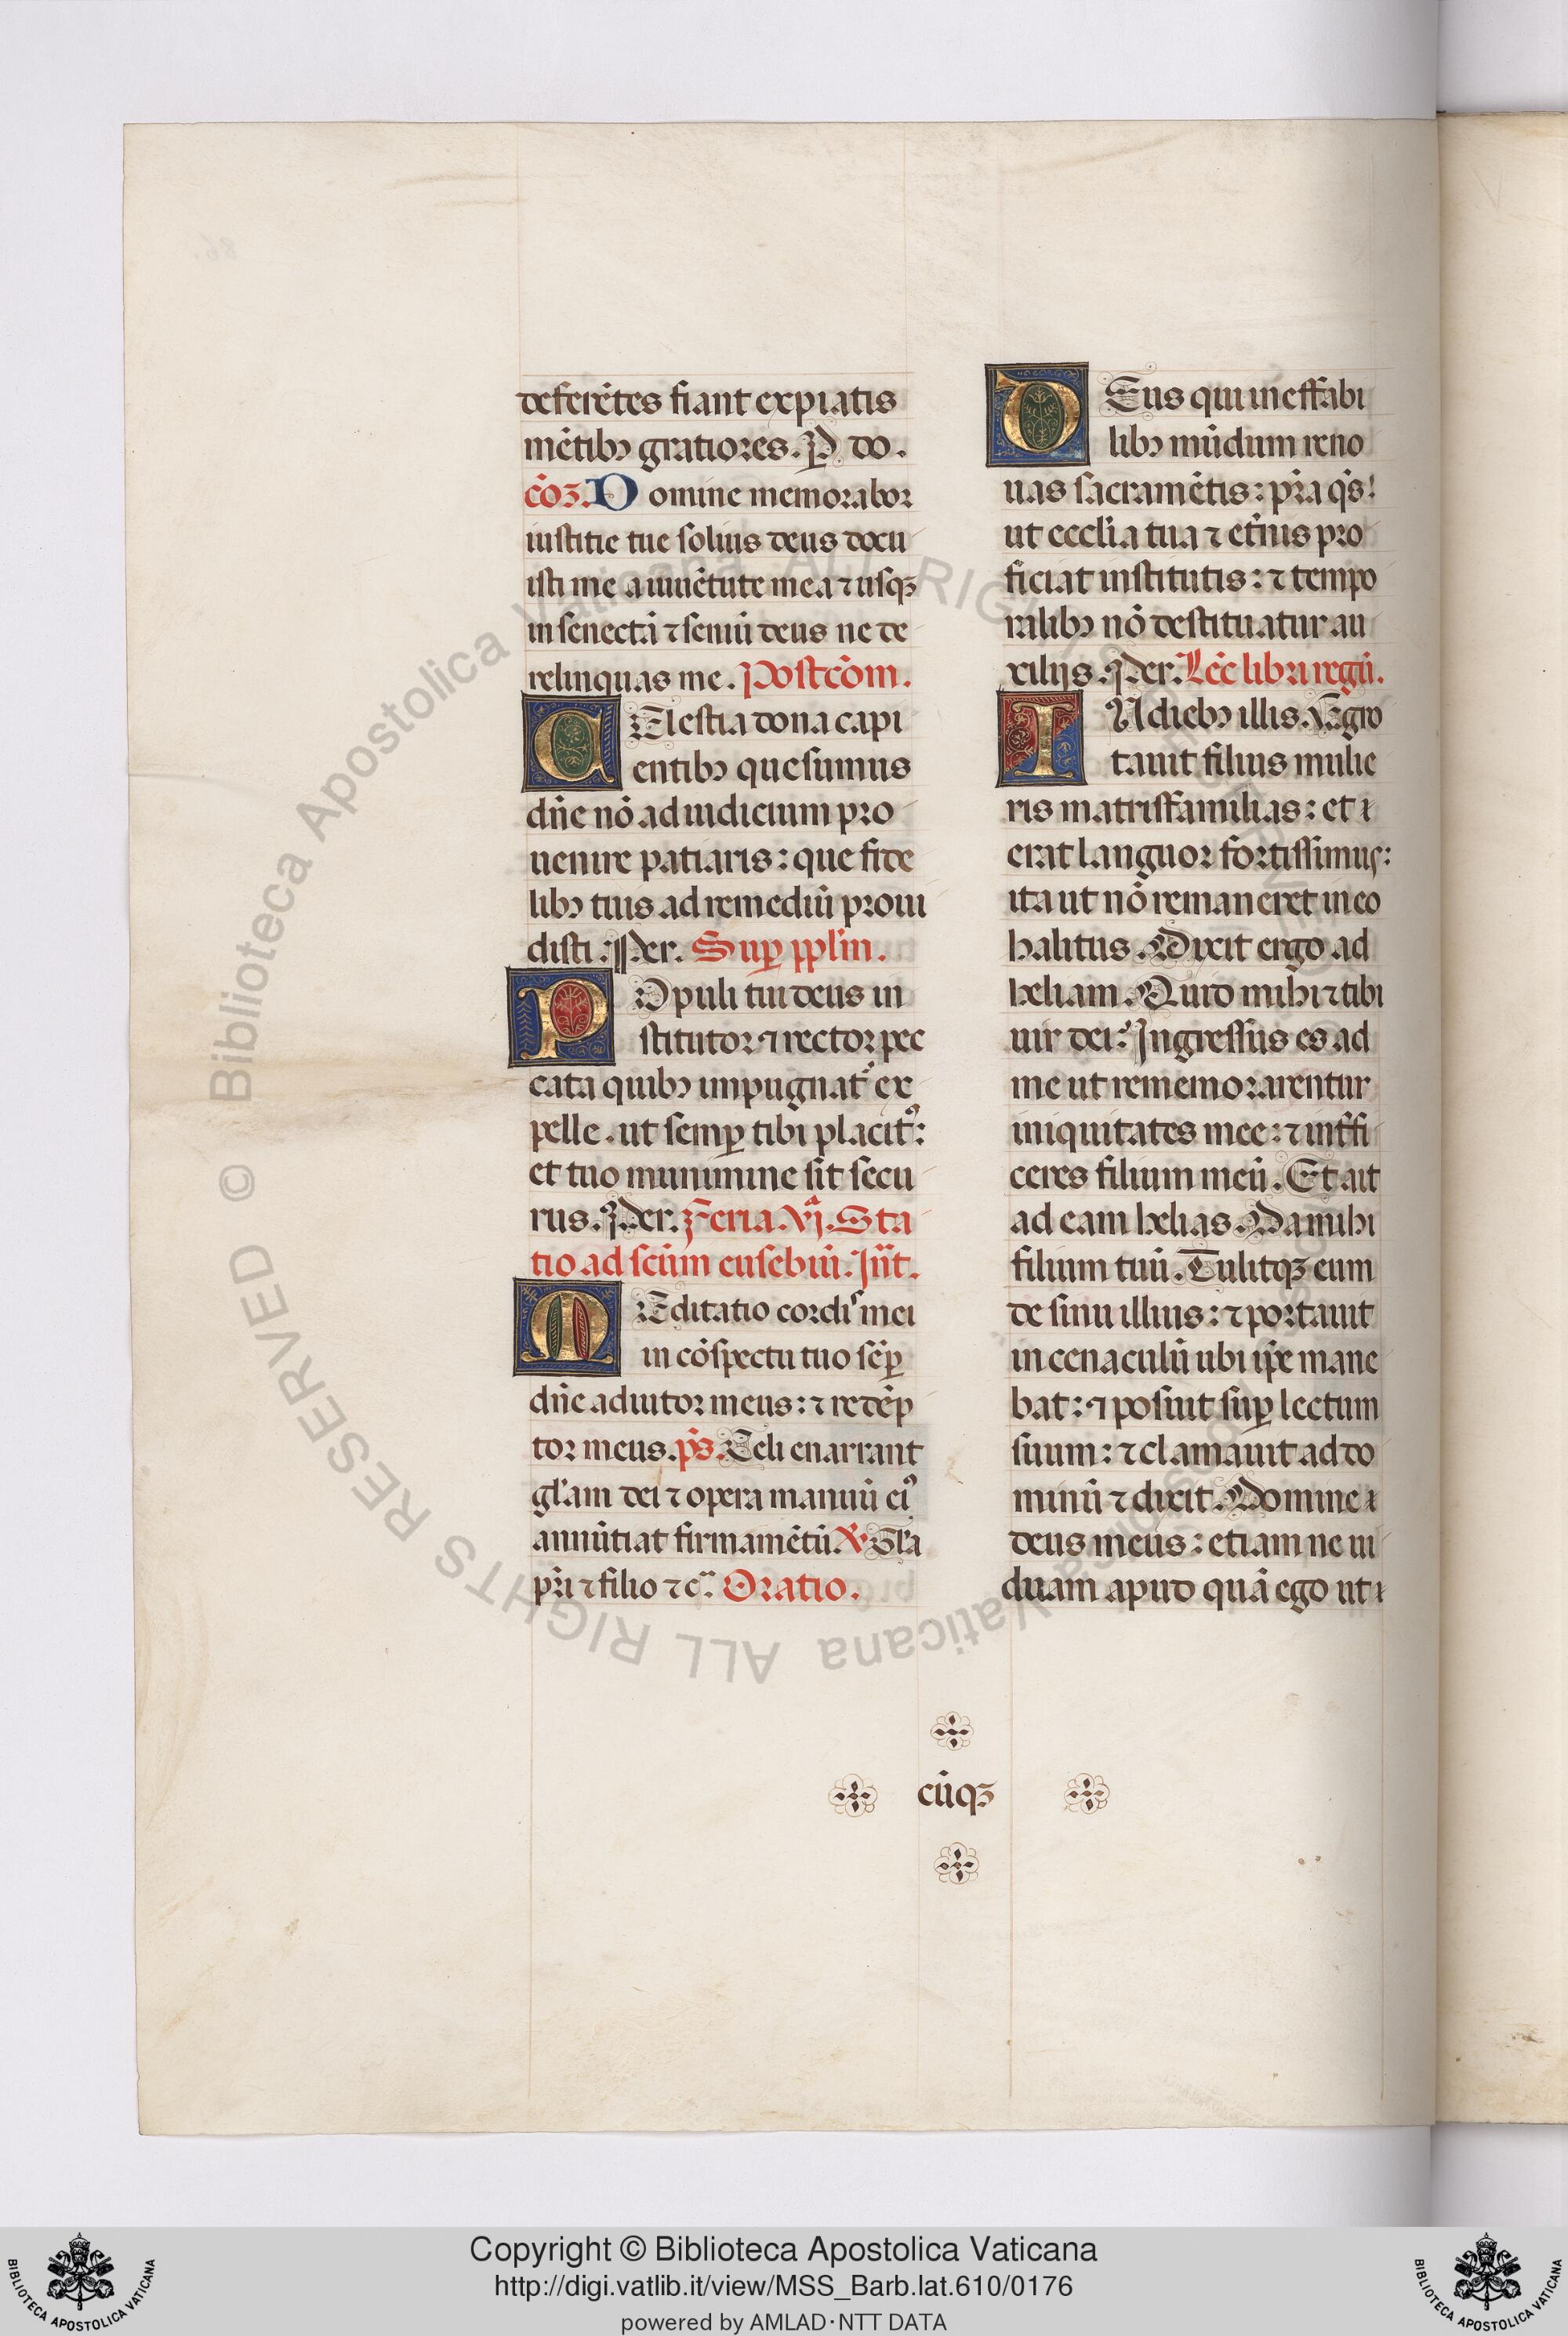 deferētes fiant expiatis
mētibꝫ gratiores. P̲ do.
cōꝫ. Domine memorabor
iustitie tue solius deus docu
isti me a iuuētute mea ⁊ usqꝫ
in senectā ⁊ seniū deus ne de
relinquas me. Postcōm.
CElestia dona capi
entibꝫ quesumus
dn̄e nō ad iudicium pro
uenire patiaris: que fide
libꝫ tuis ad remediū proui
disti. Per. Suꝑ ppl̄m.
POpuli tui deus in
stitutor ⁊ rector pec
cata quibꝫ impugnat᷑ ex
pelle. ut semꝑ tibi placitꝰ:
et tuo munimine sit secu
rus. Per. Feria .vjᵃ. Sta
tio ad scūm eusebiū. Int̄.
MEditatio cordis mei
in cōspectu tuo sēꝑ
dn̄e adiutor meus: ⁊ redēp
tor meus. p̄s. Celi enarrant
gl̄am dei ⁊ opera manuū eiꝰ
annūtiat firmamētū. ℣. Gl̄a
pr̄i ⁊ filio ⁊ c̄. Oratio.
DEus qui ineffabi
libꝫ mūdum reno
uas sacramētis: pr̄a q̄s:
ut eccl̄ia tua ⁊ et̄nis pro
ficiat institutis: ⁊ tempo
ralibꝫ nō destituatur au
xilijs. Per. Lēc libri regū.
IN diebꝫ illis. Egro
tauit filius mulie
ris matrisfamilias: et
erat languor fortissimus:
ita ut nō remaneret in eo
halitus. Dixit ergo ad
heliam. Quid mihi ⁊ tibi
uir dei? Ingressus es ad
me ut rememorarentur
iniquitates mee: ⁊ inffi
ceres filium meū. Et ait
ad eam helias. Da mihi
filium tuū. Tulitqꝫ eum
de sinu illius: ⁊ portauit
in cenaculū ubi ip̄e mane
bat: ⁊ posuit suꝑ lectum
suum: ⁊ clamauit ad do
minū ⁊ dixit. Domine
deus meus: etiam ne ui
duam apud quā ego ut
cūqꝫ
© Biblioteca Apostolica Vaticana ALL RIGHTS RESERVED
Copyright © Biblioteca Apostolica Vaticana
http://digi.vatlib.it/view/MSS_Barb.lat.610/0176
powered by AMLAD·NTT DATA
BIBLIOTECA APOSTOLICA VATICANA
BIBLIOTECA APOSTOLICA VATICANA